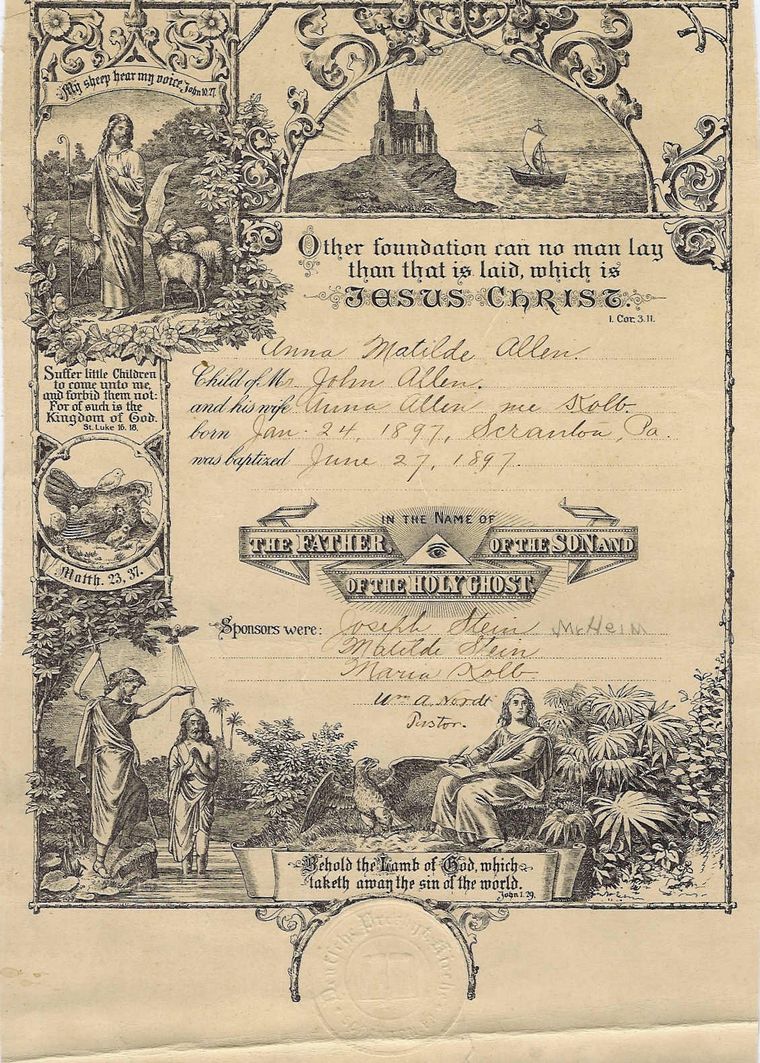 My sheep hear my voice. John 10.27.
Other foundation can no man lay
than that is laid, which is
JESUS CHRIST.
1. Cor. 3.11.
Anna Matilde Allen.
Child of Mr. John Allen.
and his wife Anna Allen nee Kolb.
born Jan. 24, 1897, Scranton, Pa.
was baptized June 27, 1897.
Suffer little Children
to come unto me,
and forbid them not:
For of such is the
Kingdom of God.
St. Luke 16. 18.
Matth. 23, 37.
IN THE NAME OF
THE FATHER, OF THE SON AND
OF THE HOLY GHOST.
Sponsors were: Joseph Stein McHeim
Matilde Stein
Maria Kolb
Wm A. Nordt
Pastor.
Behold the Lamb of God, which
taketh away the sin of the world.
John 1. 29.